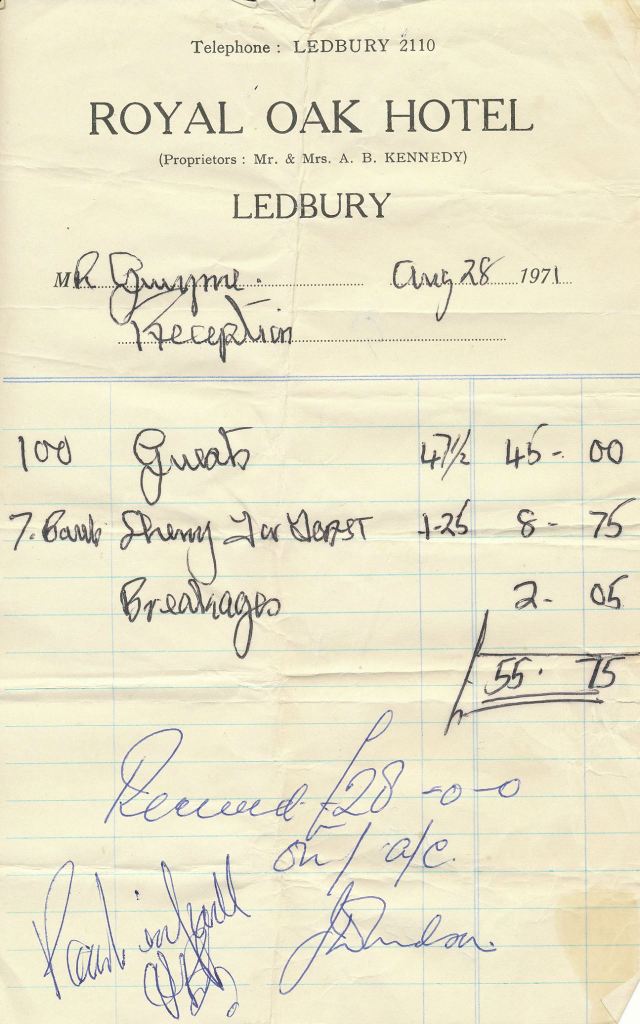 Telephone : LEDBURY 2110
ROYAL OAK HOTEL
(Proprietors : Mr. & Mrs. A. B. KENNEDY)
LEDBURY
MR Gwynne. Aug 28 1971
Reception
100 Guests 47½ 45 - 00
7. Sherry For 1-25 8 - 75
Breakages 2 - 05
55 . 75
Received £28 -0-0
on / a/c.
Paid in full